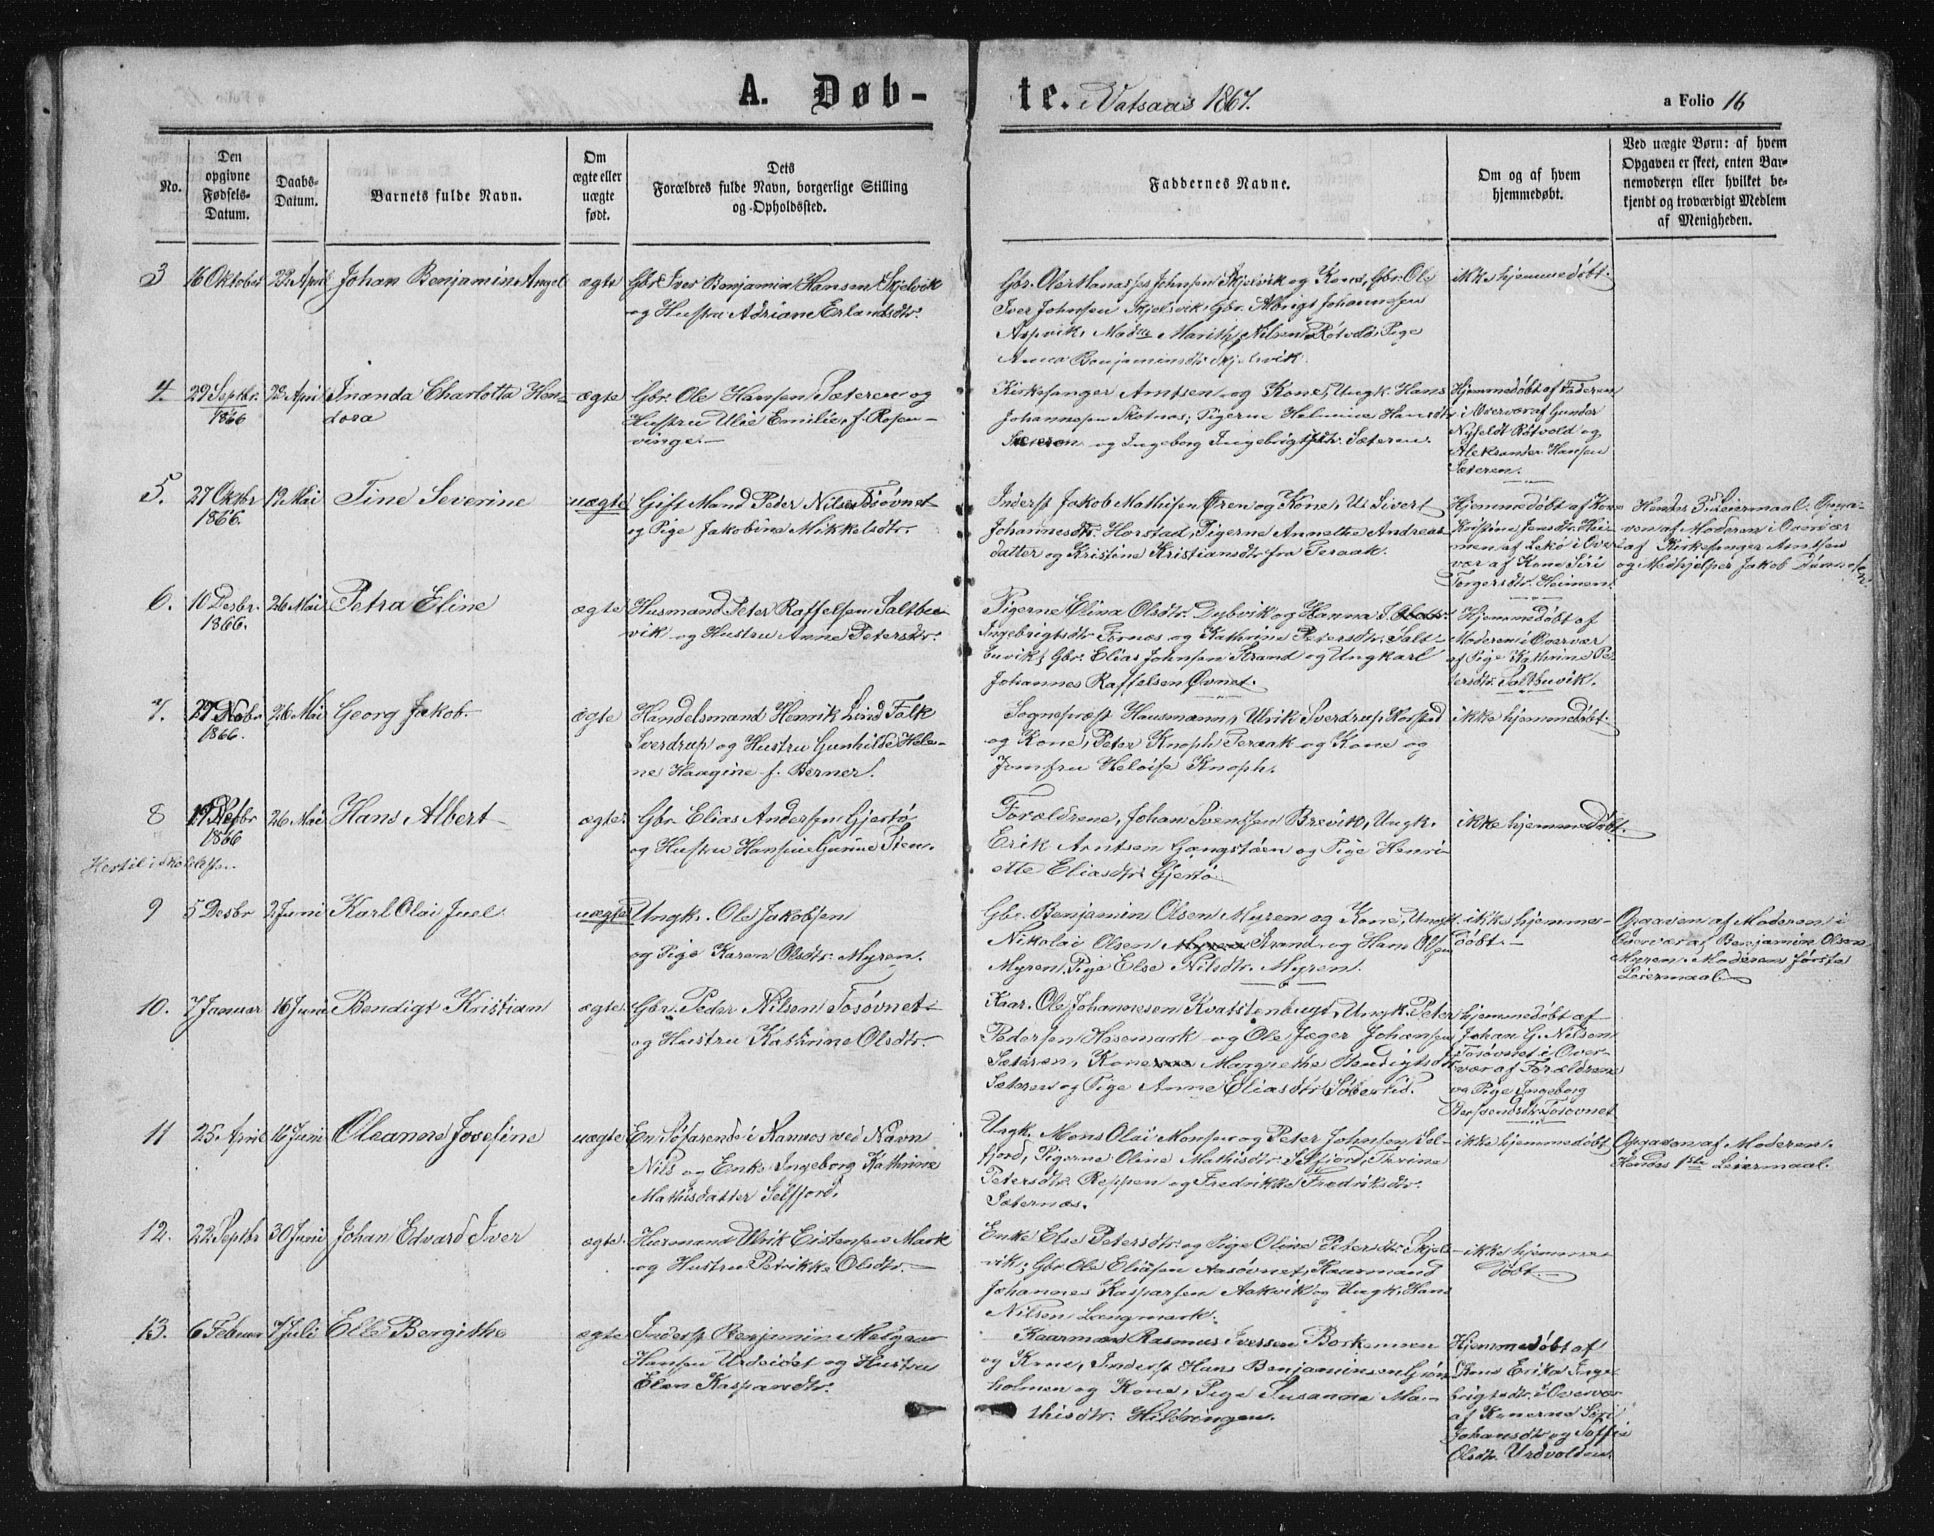 A. Døb-
te. i Vatsaas 1867.
a Folio 16
No.
Den opgivne Fødsels-Datum.
Daabs-Datum.
Barnets fulde Navn.
Om ægte eller uægte født.
Dets Forældres fulde Navn, borgerlige Stilling og Opholdssted.
Faddernes Navne.
Om og af hvem hjemmedøbt.
Ved uægte Børn: af hvem Opgaven er skeet, enten Barnemoderen eller hvilket bekjendt og troværdigt Medlem af Menigheden.
3 16 Oktober 22 April Johan Benjamin Angel ægte Gbr. Iver Benjamin Hansen Skjelvik
og Hustru Adriane Erlandsdtr.
Johnsen Skjelvik og Kone, Gbr. Ole
Iver Johnsen Skjelsvik, Gbr. Albrigt Johannesen
Aspvik, Marith Nilsen Røtvold, Pige
Anna Benjaminsdtr Skjelsvik.
ikke hjemmedøbt.
4. 29 Septbr. 1866 22 April Inanda Charlotta Hen-
dora
ægte Gbr. Ole Hansen Sæteren og
Hustru Ulie Emilie, f. Rosen-
vinge.
Kirkesanger Arntsen og Kone, Ungk. Hans
Johannesen Skotnes, Pigerne Helmine Hansdtr
Sæteren og Ingeborg Ingebrigtsdtr. Sæteren.
Hjemmedøbt af Faderen
i Overvær af Gunder
Nyfeldt Røtvold og
Aleksander Hansen
Sæteren.
5. 27 Oktbr 1866. 19 Mai Tine Severine uægte Gift Mand Peder Nilsen Tosøvnet
og Pige Jakobine Mikkelsdtr.
Inderst Jakob Mathisen Øren og Kone, U. Sivert
Johannesdtr. Horstad, Pigerne Annethe Andreas
datter og Kristine Kristiansdtr fra Teraak.
Hjemmedøbt af Kone
Kristine Jensdtr. Hei-
men af Lekø i Over-
vær af Kone Siri
Torgersdtr. Heimen.
Hendes 3die Leiermaal. Opga-
ven af Moderen i Overvær
af Kirkesanger Arntsen
og Medhjelper Jakob
6. 10 Desbr. 1866. 26 Mai Petra Eline ægte Husmand Peter Raffelsen Saltbu-
vik og Hustru Anne Petersdtr.
Pigerne Elina Olsdtr. Dybvik og Hanna
Ingebrigtsdtr Fornæs og Kathrine Petersdtr. Salt-
buvik, Gbr. Elias Johnsen Strand og Ungkarl
Johannes Raffelsen Øvnet.
Hjemmedøbt af
Moderen i Overvær
af Pige Kathrine Pe-
tersdtr. Saltbuvik.
7. 1866. 26 Mai Georg Jakob. ægte Handelsmand Henrik Lind Falk
Sverdrup og Hustru Gunhilde Hele-
ne Haagine f. Berner.
Sognepræst Hausmann, Ulrik Sverdrup Horsted
og Kone, Peter Knoph Teraak og Kone og
Jomfru Heloise Knoph.
ikke hjemmedøbt.
8 1866 26 Mai Hans Albert ægte Gbr. Elias Andersen Gjertø
og Hustru Hansine Gurine Tien.
Forældrene, Johan Svendsen Brevik, Ungk.
Erik Arntsen Gangstøen og Pige Henri-
ette Eliasdtr. Gjertø
ikke hjemmedøbt.
Hertil i
9 5 Desbr 2 Juni Karl Olai Juel uægte Ungk. Ole Jakobsen
og Pige Karen Olsdtr. Myren.
Gbr. Benjamin Olsen Myren og Kone, Ungk.
Nikolai Olsen Strand og Hans Olsen
Myren, Pige Else Nilsdtr. Myren.
ikke hjemme-
døbt.
Opgaven af Moderen i
Overvær af Benjamin Olsen
Myren. Moderens første
Leiermaal
10. 7 Januar 16 Juni Bendigt Kristian ægte. Gbr. Peder Nilsen Tosøvnet
og Hustru Kathrine Olsdtr.
Kaar. Ole Johannesen Kvatstenbugt, Ungk. Peter
Pedersen Hasemark og Ole Jæger Johansen
Sæteren, Kone Margrethe Bendigtsdtr
Sæteren og Pige Anne Eliasdtr Søberlid.
hjemmedøbt af
Johan G. Nilsen
Tosøvnet i Over-
vær af Forældrene
og Pige Ingeborg
Berfsendsdtr. Tosøvnet
11 25 April 16 Juni Oleanna Josefine uægte En Søfarende i Namsos ved Navn
Nils og Enke Ingeborg Kathrine
Mathisdatter Selfjord.
Ungk. Mons Olai Monsen og Peter Johnsen Sel-
fjord, Pigerne Oline Mathisdtr. Selfjord, Thrine
Petersdtr. Reppen og Fredrikke Fredriksdtr.
Sæternæs.
ikke hjemmedøbt
Opgaven af Moderen.
Hendes 1ste Leiermaal.
12. 22 Septbr 30 Juni Johan Edvard Iver ægte. Huusmand Ulrik Eistensen Mark
og Hustru Petrikke Olsdtr.
Enke Else Petersdtr. og Pige Oline Petersdtr. Skjels-
vik; Gbr. Ole Eliasen Aasøvnet, Kaarmand
Johannes Kasparsen Aakvik og Ungk. Hans
Nilsen Langmark.
ikke hjemme-
døbt.
13. 6 Februar 7 Juli Elle Bergithe ægte Inderst Benjamin
Hansen Urdsiøet og Hustru
Elen Kaspardtr.
Kaarmand Rasmus Iversen Borkemoen
og Kone, Inderst Hans Benjaminsen
holmen og Kone, Pige Susanna Ma-
thisdtr. Hildringen.
Hjemmedøbt af
Kone Erika Inge-
brigtsdtr. i Overvær
af Konerne Siri
Johansdtr og Soffie
Olsdtr. Urdvolden.